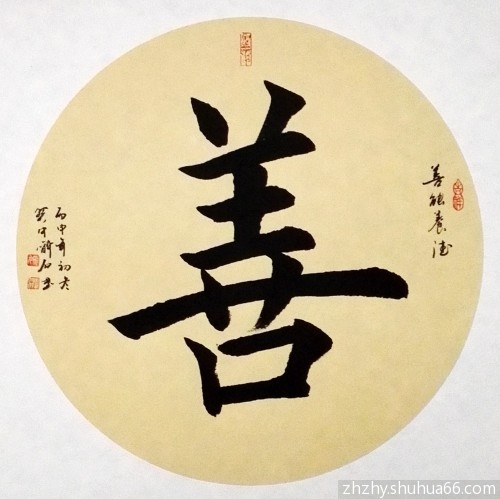 善
善能養德
丙申年初冬
石书
zhzhy.shuhua66.com